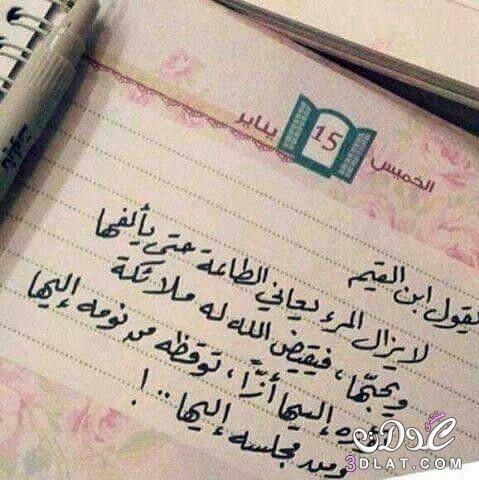 الخميس 15 يناير
يقول ابن القيم
لا يزال المرء يعاني الطاعة حتى يألفها
ويحبّها، فيقيض الله له ملائكة
تؤزه إليها أزًّا، توقظه من نومه إليها
ومن مجلسه إليها..!
منتدى عدلات
3DLAT.COM